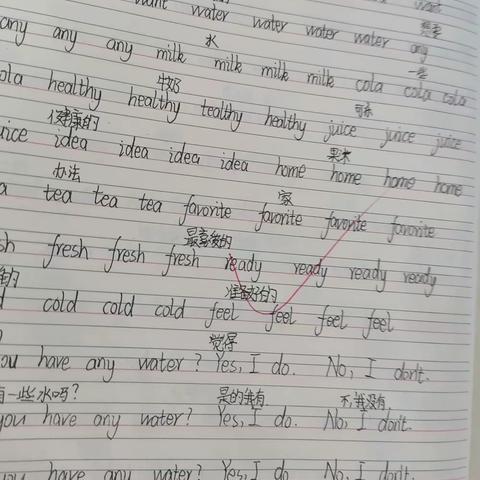 want water water water water want
水 想要
any any any milk milk milk milk cola any
牛奶 一些
cola healthy healthy tealthy healthy juice cola cola
健康的 可乐
juice idea idea idea idea home juice juice
办法 果汁
tea tea tea favorite favorite home home home
家
fresh fresh fresh fresh ready favorite favorite
最喜欢的
cold cold cold feel ready ready ready
准备好的
feel feel feel
觉得
you have any water? Yes, I do. No, I don't.
有一些水吗? 是的我有. 不,我没有.
you have any water? Yes, I do. No, I don't.
you have any water? Yes, I do No, I don't.